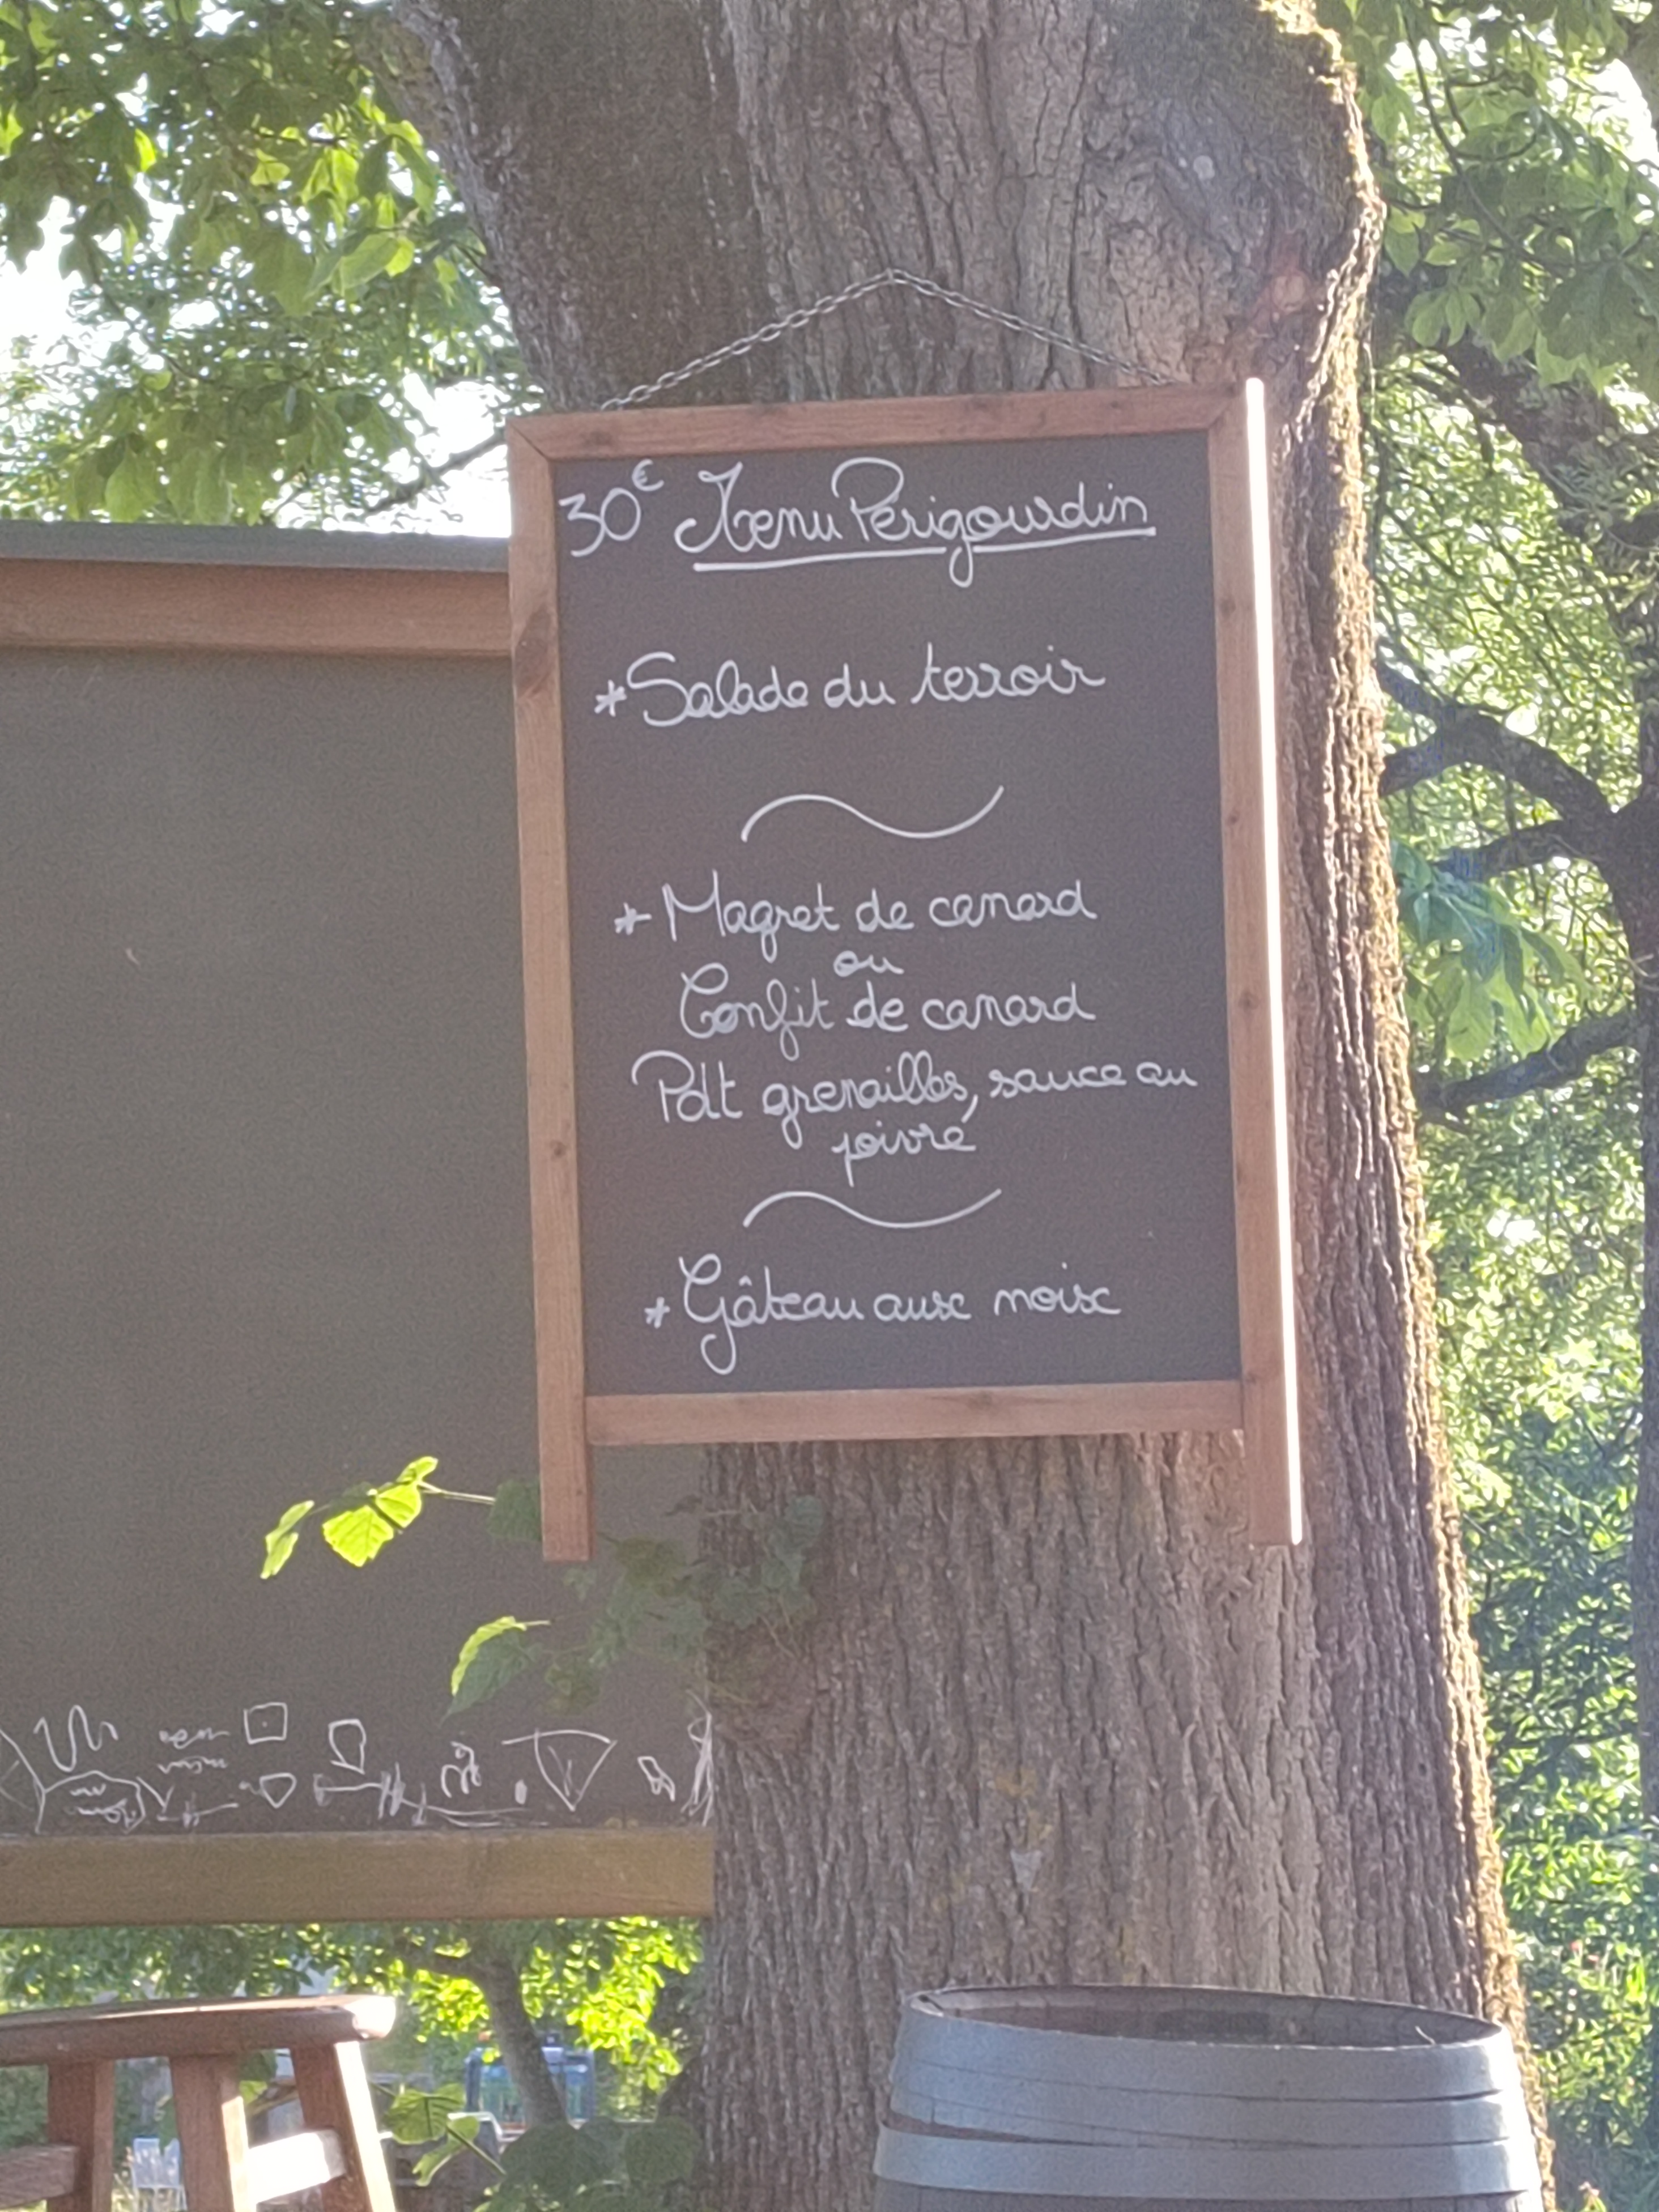 30€ Menu Périgourdin
*Salade du terroir
*Magret de canard
ou
Confit de canard
Pdt grenailles, sauce au
poivre
*Gâteau aux noix